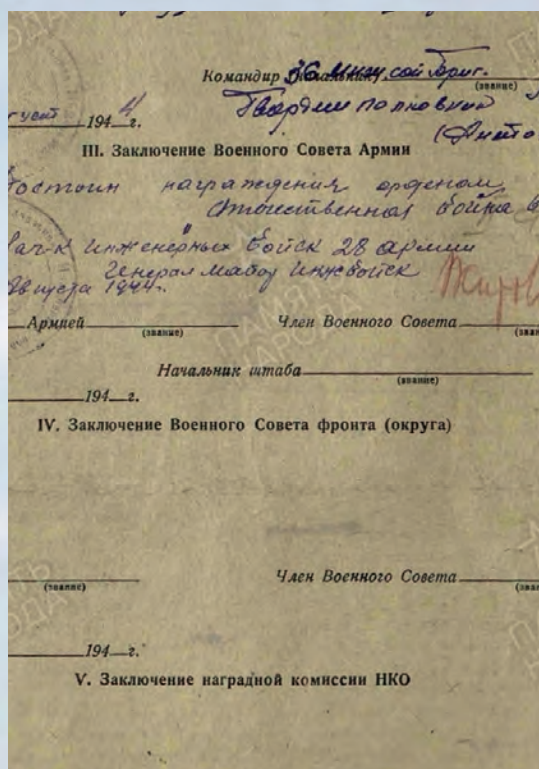 Командир 36 инж сап бриг.
(звание)
август 1944 г.
Гвардии полковник
III. Заключение Военного Совета Армии
Достоин награждения орденом
Отечественная война
Нач-к инженерных войск 28 армии
Генерал майор инж войск
августа 1944г.
Армией Член Военного Совета
(звание)
Начальник штаба
(звание)
194 г.
IV. Заключение Военного Совета фронта (округа)
(звание) Член Военного Совета
194 г.
V. Заключение наградной комиссии НКО